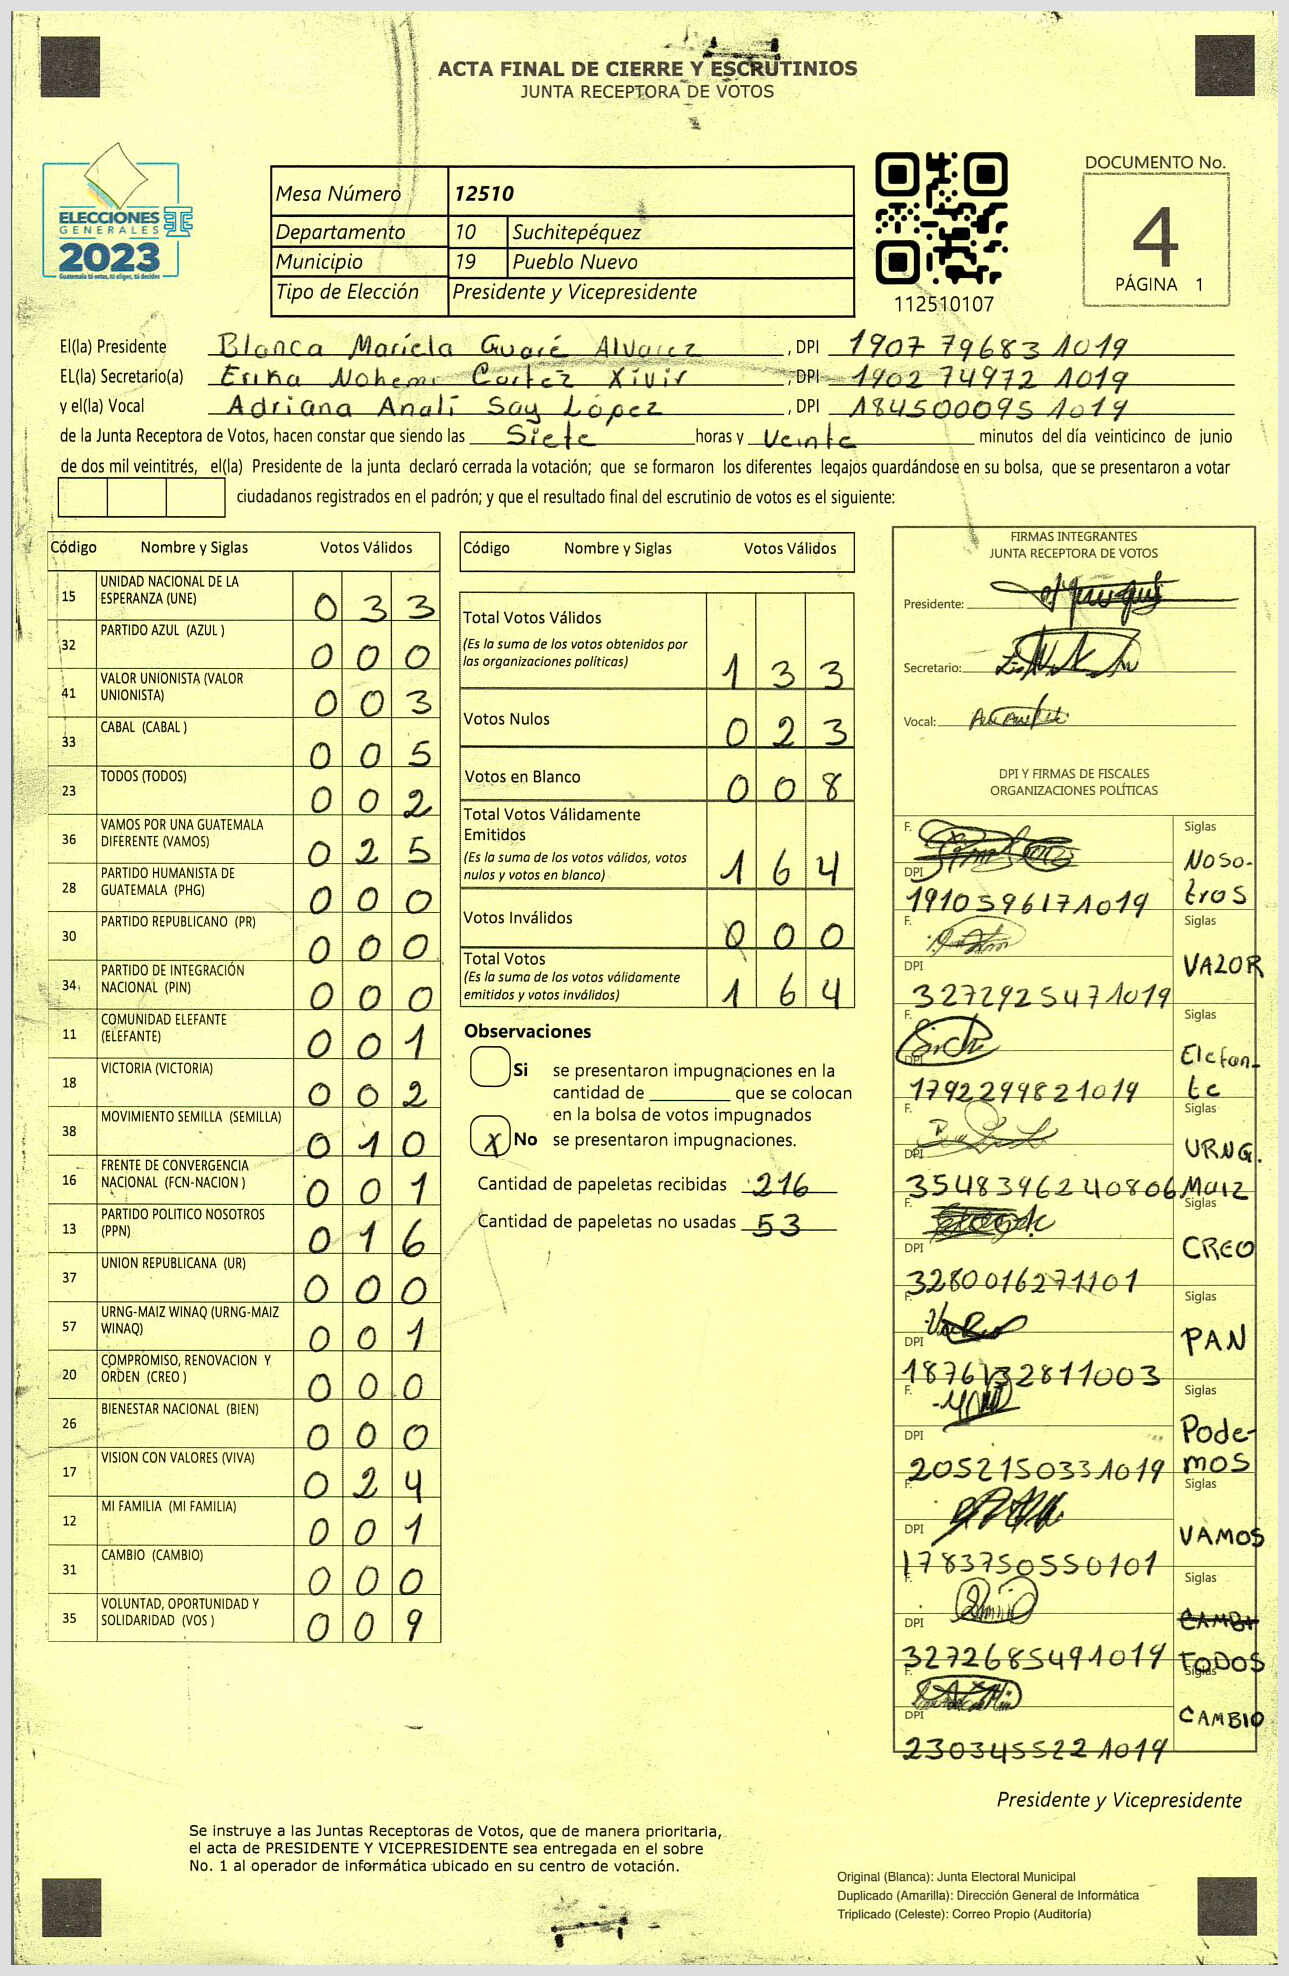 ACTA FINAL DE CIERRE Y ESCRUTINIOS
JUNTA RECEPTORA DE VOTOS
ELECCIONES
GENERALES
2023
Guatemala tú votas, tú eliges, tú decides
Mesa Número 12510
Departamento 10 Suchitepéquez
Municipio 19 Pueblo Nuevo
Tipo de Elección Presidente y Vicepresidente
112510107
DOCUMENTO No.
4
PÁGINA 1
El(la) Presidente Blanca Mariela Guaré Alvarez, DPI 1907 79683 1019
EL(la) Secretario(a) Erika Nohemi Cortez Xivir, DPI 1902 74972 1019
y el(la) Vocal Adriana Analí Say López, DPI 184500095 1019
de la Junta Receptora de Votos, hacen constar que siendo las Siete horas y Veinte minutos del día veinticinco de junio
de dos mil veintitrés, el(la) Presidente de la junta declaró cerrada la votación; que se formaron los diferentes legajos guardándose en su bolsa, que se presentaron a votar
ciudadanos registrados en el padrón; y que el resultado final del escrutinio de votos es el siguiente:
Código Nombre y Siglas Votos Válidos
15 UNIDAD NACIONAL DE LA ESPERANZA (UNE) 033
32 PARTIDO AZUL (AZUL ) 000
41 VALOR UNIONISTA (VALOR UNIONISTA) 003
33 CABAL (CABAL ) 005
23 TODOS (TODOS) 002
36 VAMOS POR UNA GUATEMALA DIFERENTE (VAMOS) 025
28 PARTIDO HUMANISTA DE GUATEMALA (PHG) 000
30 PARTIDO REPUBLICANO (PR) 000
34 PARTIDO DE INTEGRACIÓN NACIONAL (PIN) 000
11 COMUNIDAD ELEFANTE (ELEFANTE) 001
18 VICTORIA (VICTORIA) 002
38 MOVIMIENTO SEMILLA (SEMILLA) 010
16 FRENTE DE CONVERGENCIA NACIONAL (FCN-NACION ) 001
13 PARTIDO POLITICO NOSOTROS (PPN) 016
37 UNION REPUBLICANA (UR) 000
57 URNG-MAIZ WINAQ (URNG-MAIZ WINAQ) 001
20 COMPROMISO, RENOVACION Y ORDEN (CREO ) 000
26 BIENESTAR NACIONAL (BIEN) 000
17 VISION CON VALORES (VIVA) 024
12 MI FAMILIA (MI FAMILIA) 001
31 CAMBIO (CAMBIO) 000
35 VOLUNTAD, OPORTUNIDAD Y SOLIDARIDAD (VOS ) 009
Código Nombre y Siglas Votos Válidos
Total Votos Válidos
(Es la suma de los votos obtenidos por
las organizaciones políticas) 133
Votos Nulos 023
Votos en Blanco 008
Total Votos Válidamente
Emitidos
(Es la suma de los votos válidos, votos
nulos y votos en blanco) 164
Votos Inválidos 000
Total Votos
(Es la suma de los votos válidamente
emitidos y votos inválidos) 164
Observaciones
Si se presentaron impugnaciones en la
cantidad de ________ que se colocan
en la bolsa de votos impugnados
X No se presentaron impugnaciones.
Cantidad de papeletas recibidas 216
Cantidad de papeletas no usadas 53
FIRMAS INTEGRANTES
JUNTA RECEPTORA DE VOTOS
Presidente:
Secretario:
Vocal:
DPI Y FIRMAS DE FISCALES
ORGANIZACIONES POLÍTICAS
F. Siglas
DPI 1910596171019 Nosotros
F. Siglas
DPI 3272925471019 VALOR
F. Siglas
DPI 1792299821019 Elefante
F. Siglas
DPI 3548396240806 URNG. Maiz
F. Siglas
DPI 3280016271101 CREO
F. Siglas
DPI 1876132811003 PAN
F. Siglas
DPI 2052150331019 Podemos
F. Siglas
DPI 1783750550101 VAMOS
F. Siglas
DPI 3272685491019 CAMBI TODOS
F. Siglas
DPI 2303455221019 CAMBIO
Presidente y Vicepresidente
Se instruye a las Juntas Receptoras de Votos, que de manera prioritaria,
el acta de PRESIDENTE Y VICEPRESIDENTE sea entregada en el sobre
No. 1 al operador de informática ubicado en su centro de votación.
Original (Blanca): Junta Electoral Municipal
Duplicado (Amarilla): Dirección General de Informática
Triplicado (Celeste): Correo Propio (Auditoría)